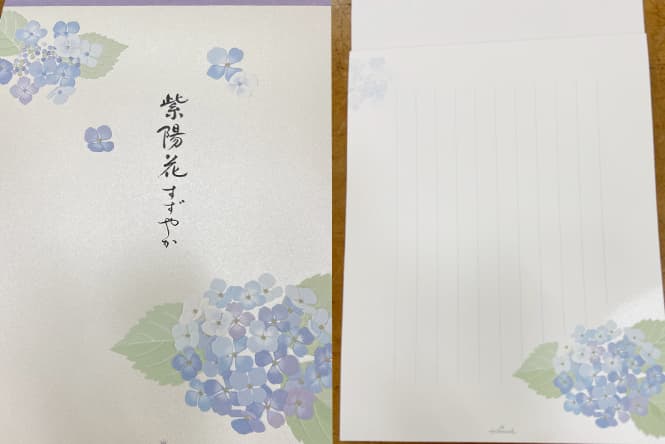 紫陽花すずやか
Hallmark